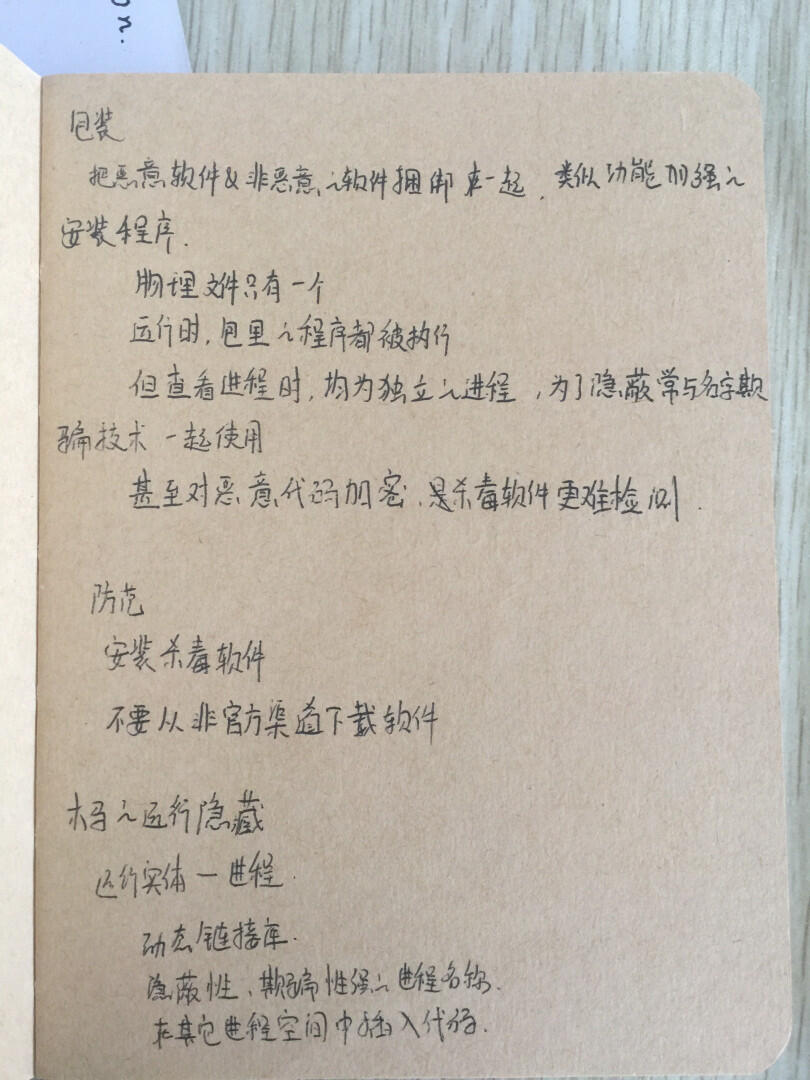 on.
包装
把恶意软件&非恶意之软件捆绑在一起,类似功能加强之
安装程序.
物理文件只有一个
运行时,包里之程序都被执行
但查看进程时,均为独立之进程,为了隐蔽常与名字欺
骗技术一起使用
甚至对恶意代码加密,是杀毒软件更难检测.
防范
安装杀毒软件
不要从非官方渠道下载软件
木马之运行隐藏
运行实体一进程.
动态链接库.
隐蔽性、欺骗性强之进程名称.
在其它进程空间中插入代码.